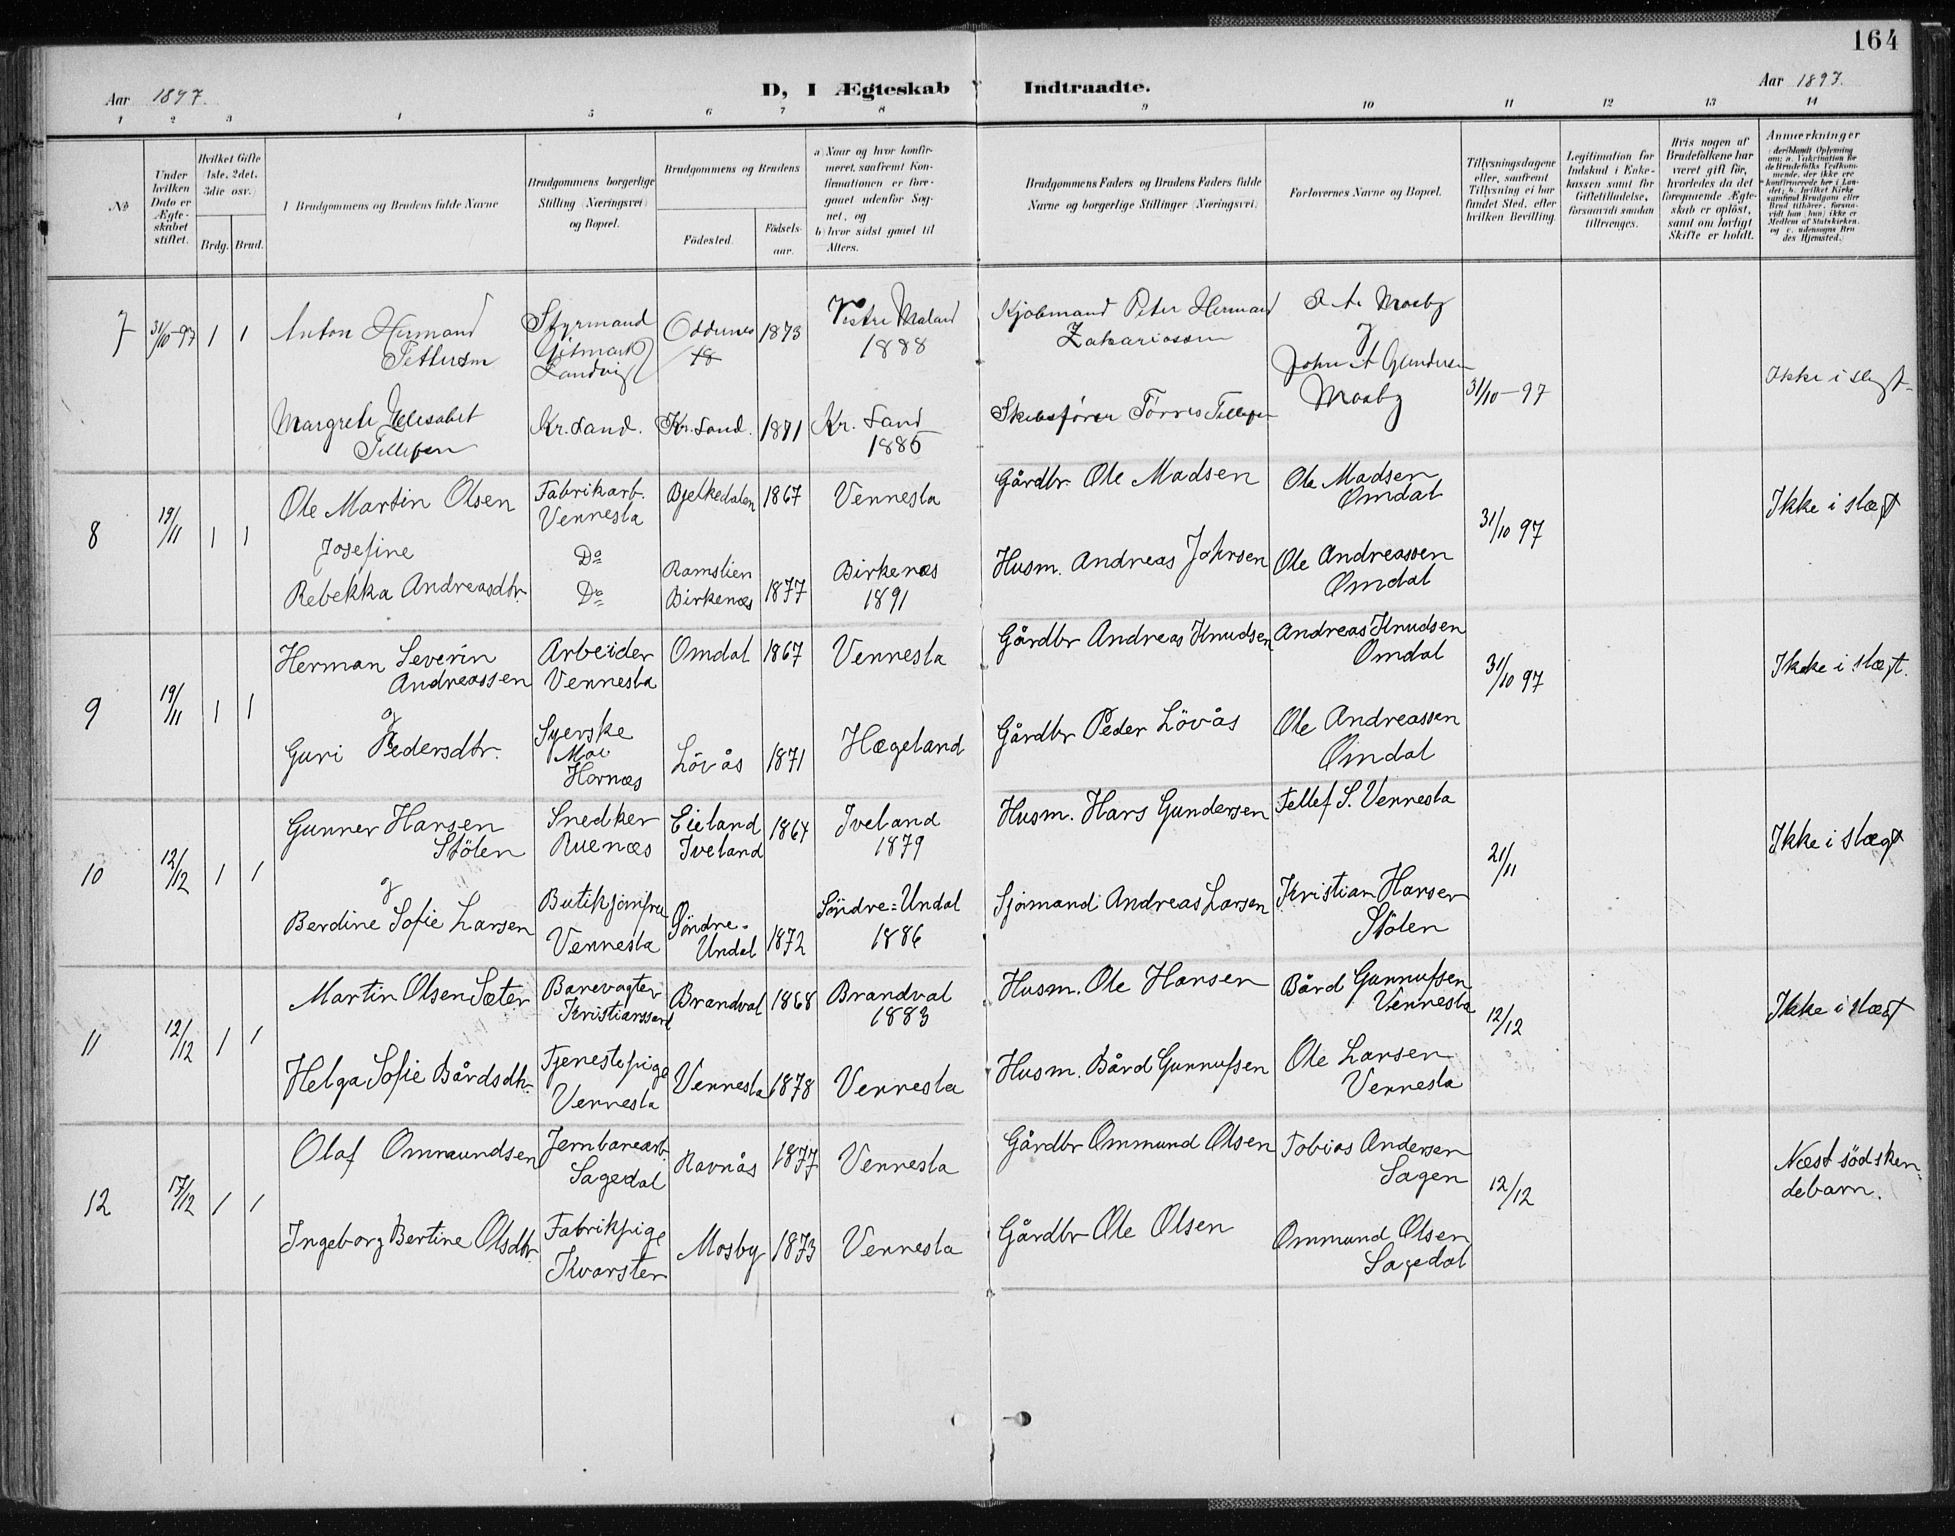 164
Aar 1897.
D, I Ægteskab Indtraadte.
Aar 1897.
1 2 3 4 5 6 7 8 9 10 11 12 13 14
No
Under hvilken Dato er Ægteskabet stiftet.
Hvilket Gifte (1ste, 2det, 3die osv.)
Brdg. Brud.
1 Brudgommens og Brudens fulde Navne
Brudgommens borgerlige Stilling (Næringsvei) og Bopæl.
Brudgommens og Brudens
Födested.
Födselsaar.
a) Naar og hvor konfirmeret, saafremt Konfirmationen er foregaaet udenfor Sognet, og
b) hvor sidst gaaet til Alters.
Brudgommens Faders og Brudens Faders fulde Navne og borgerlige Stillinger (Næringsvei)
Forlovernes Navne og Bopæl.
Tillysningsdagene eller, saafremt Tillysning ei har fundet Sted, efter hvilken Bevilling.
Legitimation for Indskud i Enkekassen samt for Giftetilladelse, forsaavidt saadan tiltrænges.
Hvis nogen af Brudefolkene har været gift för, hvorledes da det foregaaende Ægteskab er oplöst, samt om lovligt Skifte er holdt.
Anmærkninger
7 31/10-97 1 1
Anton Herman
Pettersen
Styrmand
Gitmark
Landvig
Oddernes
1873
Vestre Moland
1888
Kjöbmand Peter Herman
Zakariassen
Mosby
John A Gundersen
Mosby
31/10-97
Ikke i slegt
Margrete Elisabet
Tellefsen
Kr.sand.
Kr.sand.
1871
Kr. Sand
1886
Skibsfører Tørres Tellefsen
8 19/11 1 1
Ole Martin Olsen
Fabrikarb.
Vennesla
Bjelkedalen
1867
Vennesla
Gårdbr Ole Madsen
Ole Madsen
Omdal
31/10 97
Ikke i slægt
Josefine
Rebekka Andreasdtr.
Do
Do
Ramslien
Birkenæs
1877
Birkenæs
1891
Husm. Andreas Johnsen
Ole Andreassen
Omdal
9 19/11 1 1
Herman Severin
Andreassen
Arbeider
Vennesla
Omdal
1867
Vennesla
Gårdbr Andreas Knudsen
Andreas Knudsen
Omdal
31/10 97
Ikke i slægt.
og
Guri Pedersdtr.
Syerske
Moi
Hornæs
Lövås
1871
Hægeland
Gårdbr Peder Lövås
Ole Andreassen
Omdal
10 12/12 1 1
Gunner Hansen
Stölen
Snedker
Ruenæs
Eieland
Iveland
1864
Iveland
1879
Husm. Hans Gundersen
Tellef S. Vennesla
21/11
Ikke i slægt
og
Berdine Sofie Larsen
Butikjomfru
Vennesla
Söndre-
Undal
1872
Söndre-Undal
1886
Sjömand Andreas Larsen
Kristian Hansen
Stölen
11 12/12 1 1
Martin Olsen Sæter
Banevagter
Kristianssand
Brandval
1868
Brandval
1883
Husm. Ole Hansen
Bård Gunnufsen
Vennesla
12/12
Ikke i slægt
Helga Sofie Bårdsdtr.
Tjenestepige
Vennesla
Vennesla
1878
Vennesla
Husm. Bård Gunnufsen
Ole Larsen
Vennesla
12 17/12 1 1
Olaf Ommundsen
Jernbanearb.
Sagedal
Ravnås
1877
Vennesla
Gårdbr Ommund Olsen
Tobias Andersen
Sagen
12/12
Næstsödsken
debarn.
Ingeborg Bertine Olsdtr.
Fabrikpige
Kvarsten
Mosby
1873
Vennesla
Gårdbr Ole Olsen
Ommund Olsen
Sagedal